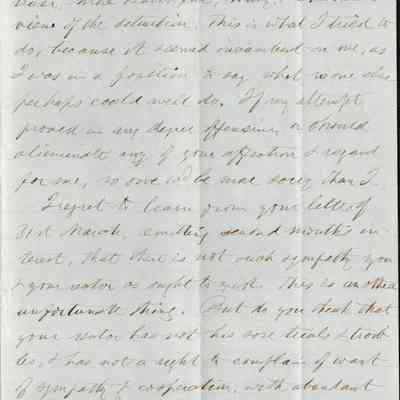 view of the detection. This is what I tried to
do, because it seemed incumbent on me, as
I was in a position to say what none else
perhaps could well do. If my attempt
proved in any degree offensive, or should
alienate any of your affection & regard
for me, no one wd be more sorry than I.
I regret to learn from your letter of
31st March, second month's in-
terest, that there is not such sympathy you
& your sister as ought to exist. This is another
unfortunate thing. But do you think that
your sister has not his sore trials & troub-
les, & has not a right to complain of want
of sympathy & cooperation, with abundant